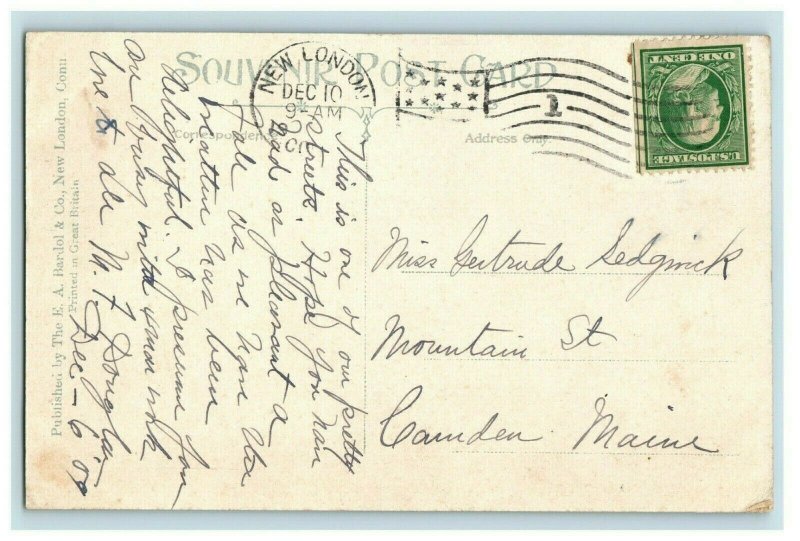 SOUVENIR POST CARD
Correspondence
Address Only
NEW LONDON
DEC 10
9-AM
CO
1
ONE CENT 1
U.S. POSTAGE
Published by The E. A. Bardol & Co., New London, Conn
Printed in Great Britain
This is one of our pretty
streets. Hope you have
had as pleasant a
fall as we have the
weather has been
delightful. I presume you
are busy with your work
Love to all M. F. Douglas
Dec - 6 '09
Miss Gertrude Sedgwick
Mountain St
Camden. Maine